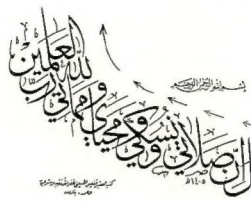 بسم الله الرحمن الرحيم
قل إن صلاتي ونسكي ومحياي ومماتي لله رب العالمين
١٤٠٥هـ